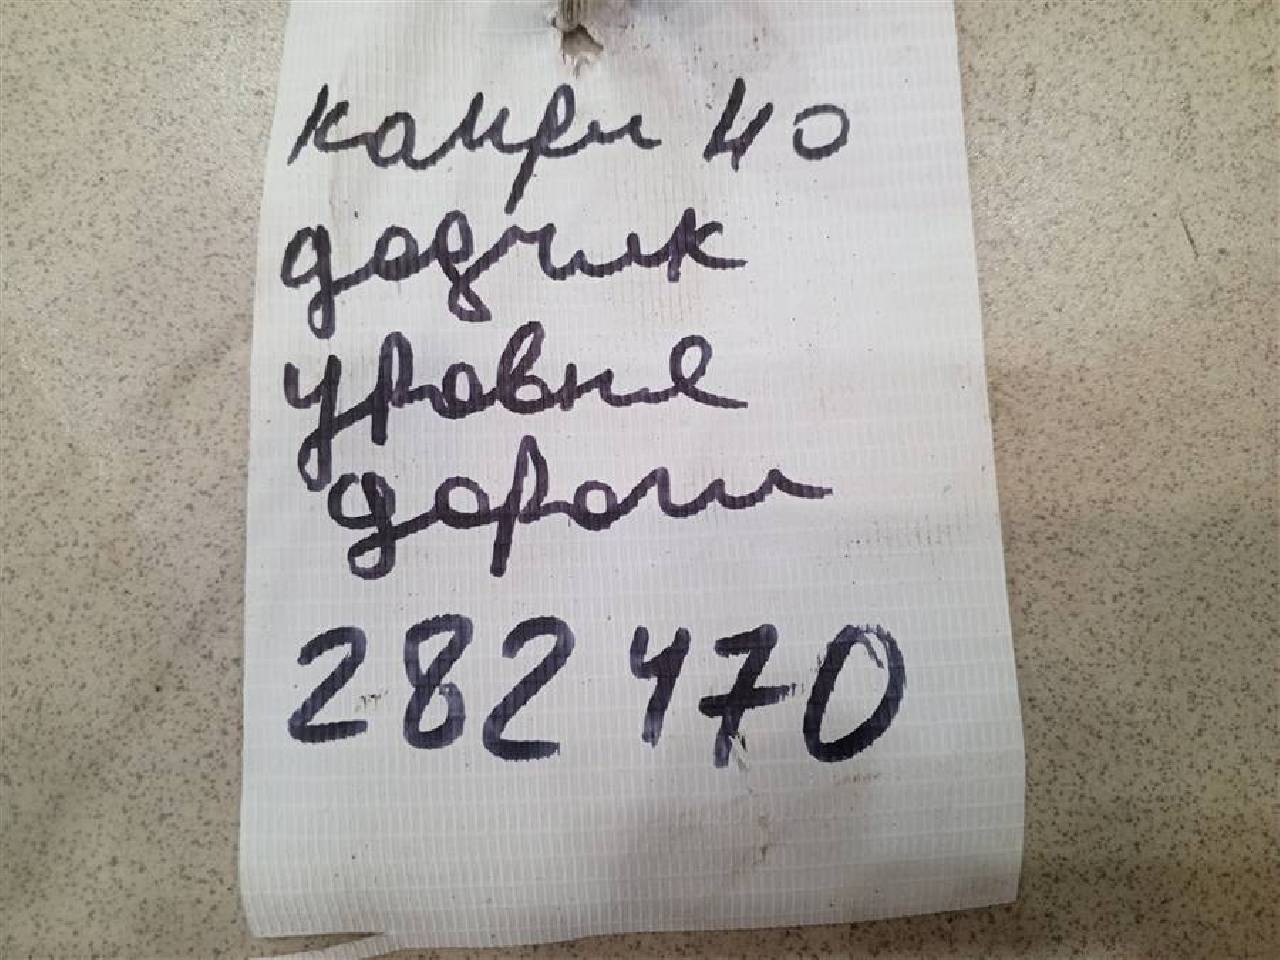 камри 40
дадчик
уровне
дороги
282470